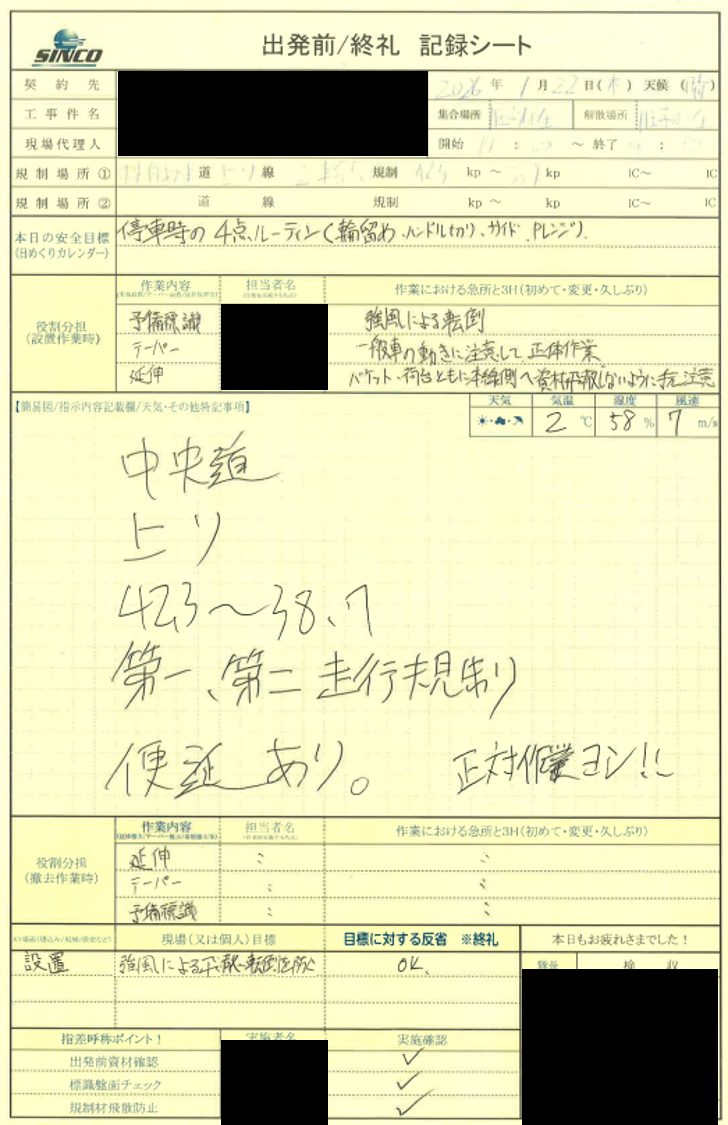 SINCO
出発前/終礼 記録シート
契約先
2026 年 1 月 22 日(木) 天候( )
工事件名
集合場所 解散場所
現場代理人
開始 : ～ 終了 :
規制場所① 道 上り 線 規制 kp ～ kp IC～ IC
規制場所② 道 線 規制 kp ～ kp IC～ IC
本日の安全目標 停車時の4点ルーティン(輪留め、ハンドル切り、サイド、Pレンジ)、
(日めくりカレンダー)
役割分担
(設置作業時)
作業内容 担当者名 作業における急所と3H(初めて・変更・久しぶり)
予備標識 強風による転倒
テーパー 一般車の動きに注意して、正体作業
延伸 バケット・荷台ともに本線側へ資材飛散しないように 注意
【簡易図/指示内容記載欄/天気・その他特記事項】
天気 気温 湿度 風速
2 ℃ 58 % 7 m/s
中央道
上り
42.3～38.7
第一、第二 走行規制り
便延 あり。 正対作業ヨシ!!
役割分担
(撤去作業時)
作業内容 担当者名 作業における急所と3H(初めて・変更・久しぶり)
延伸 : :
テーパー : :
予備標識 : :
現場(又は個人)目標 目標に対する反省 ※終礼 本日もお疲れさまでした!
設置 強風による飛散・転倒を防ぐ OK.
検収
指差呼称ポイント! 実施者名 実施確認
出発前資材確認 ✓
標識盤面チェック ✓
規制材飛散防止 ✓